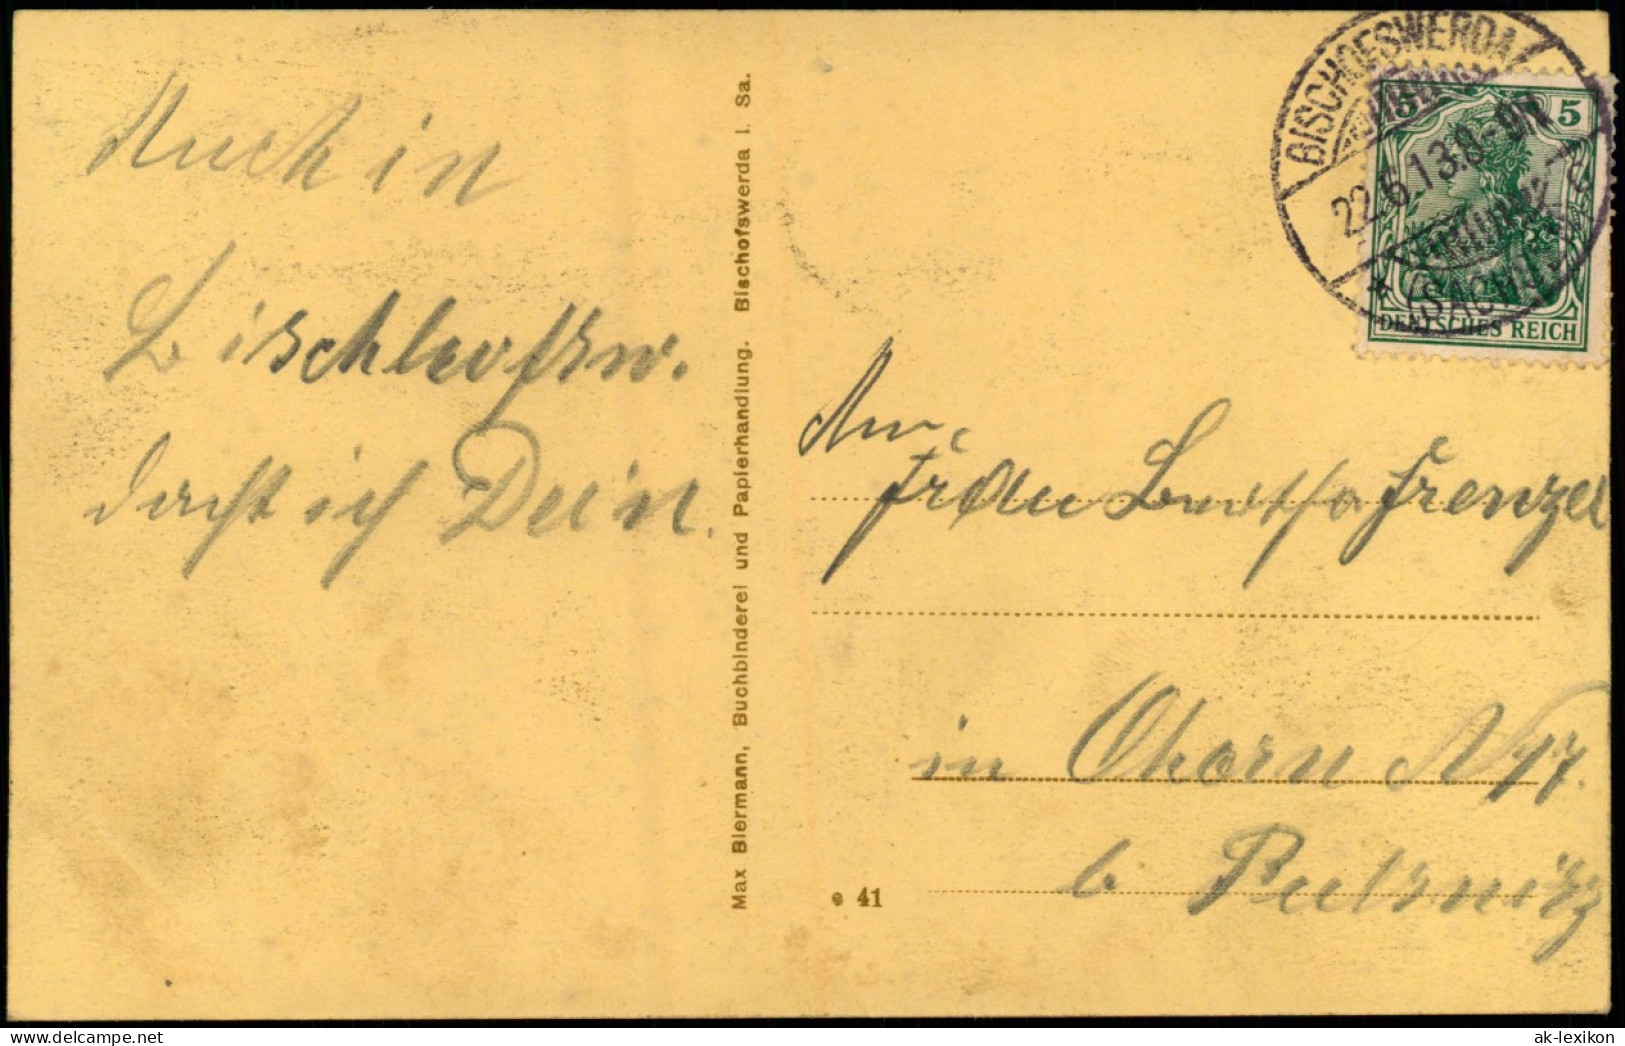 Auch in
Bischhofsw.
dacht ich Dein.
Max Biermann, Buchbinderei und Papierhandlung. Bischofswerda i. Sa.
BISCHOFSWERDA
22.6.13.8-9N
* (SACHS.)
5 5
DEUTSCHES REICH
An
Frau Bertha Frenzel
in Ohorn N 17.
b Pulsnitz
41
ak-lexikon